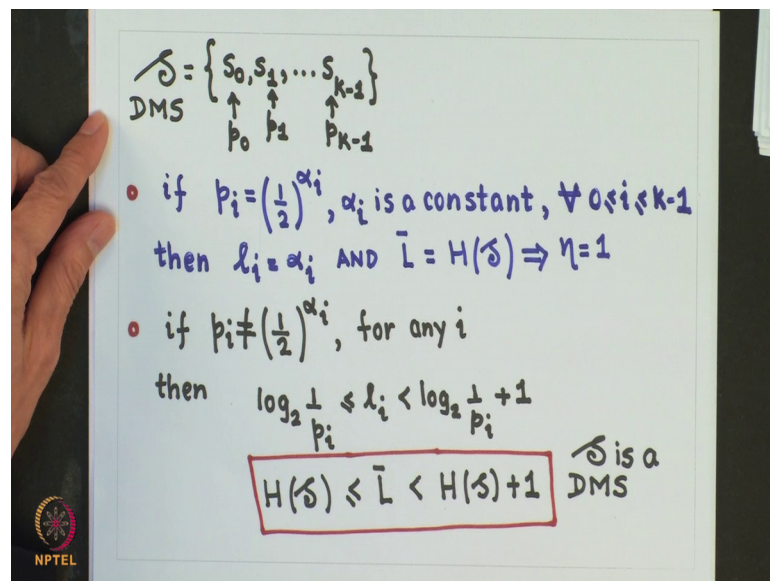 𝒮 = {S₀, S₁, ... S_K-1}
DMS ↑ ↑ ↑
p₀ p₁ p_K-1
if pᵢ = (1/2)^αᵢ, αᵢ is a constant, ∀ 0 ≤ i ≤ K-1
then lᵢ = αᵢ AND L̄ = H(𝒮) ⇒ η = 1
if pᵢ ≠ (1/2)^αᵢ, for any i
then log₂ 1/pᵢ ≤ lᵢ < log₂ 1/pᵢ + 1
H(𝒮) ≤ L̄ < H(𝒮) + 1
𝒮 is a
DMS
NPTEL